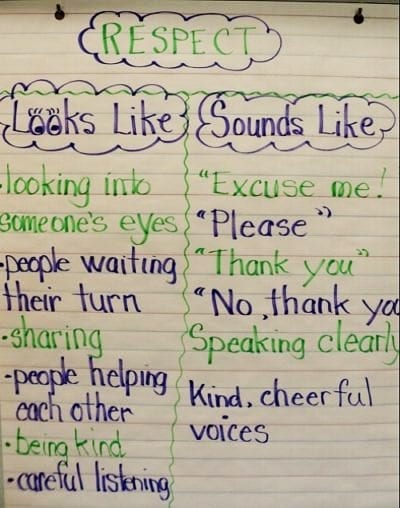 RESPECT
Looks Like
•looking into
someone's eyes
•people waiting
their turn
•sharing
-people helping
each other
•being kind
•careful listening
Sounds Like
"Excuse me!
"Please"
"Thank you"
"No, thank yo
Speaking clearly
Kind, cheerful
voices